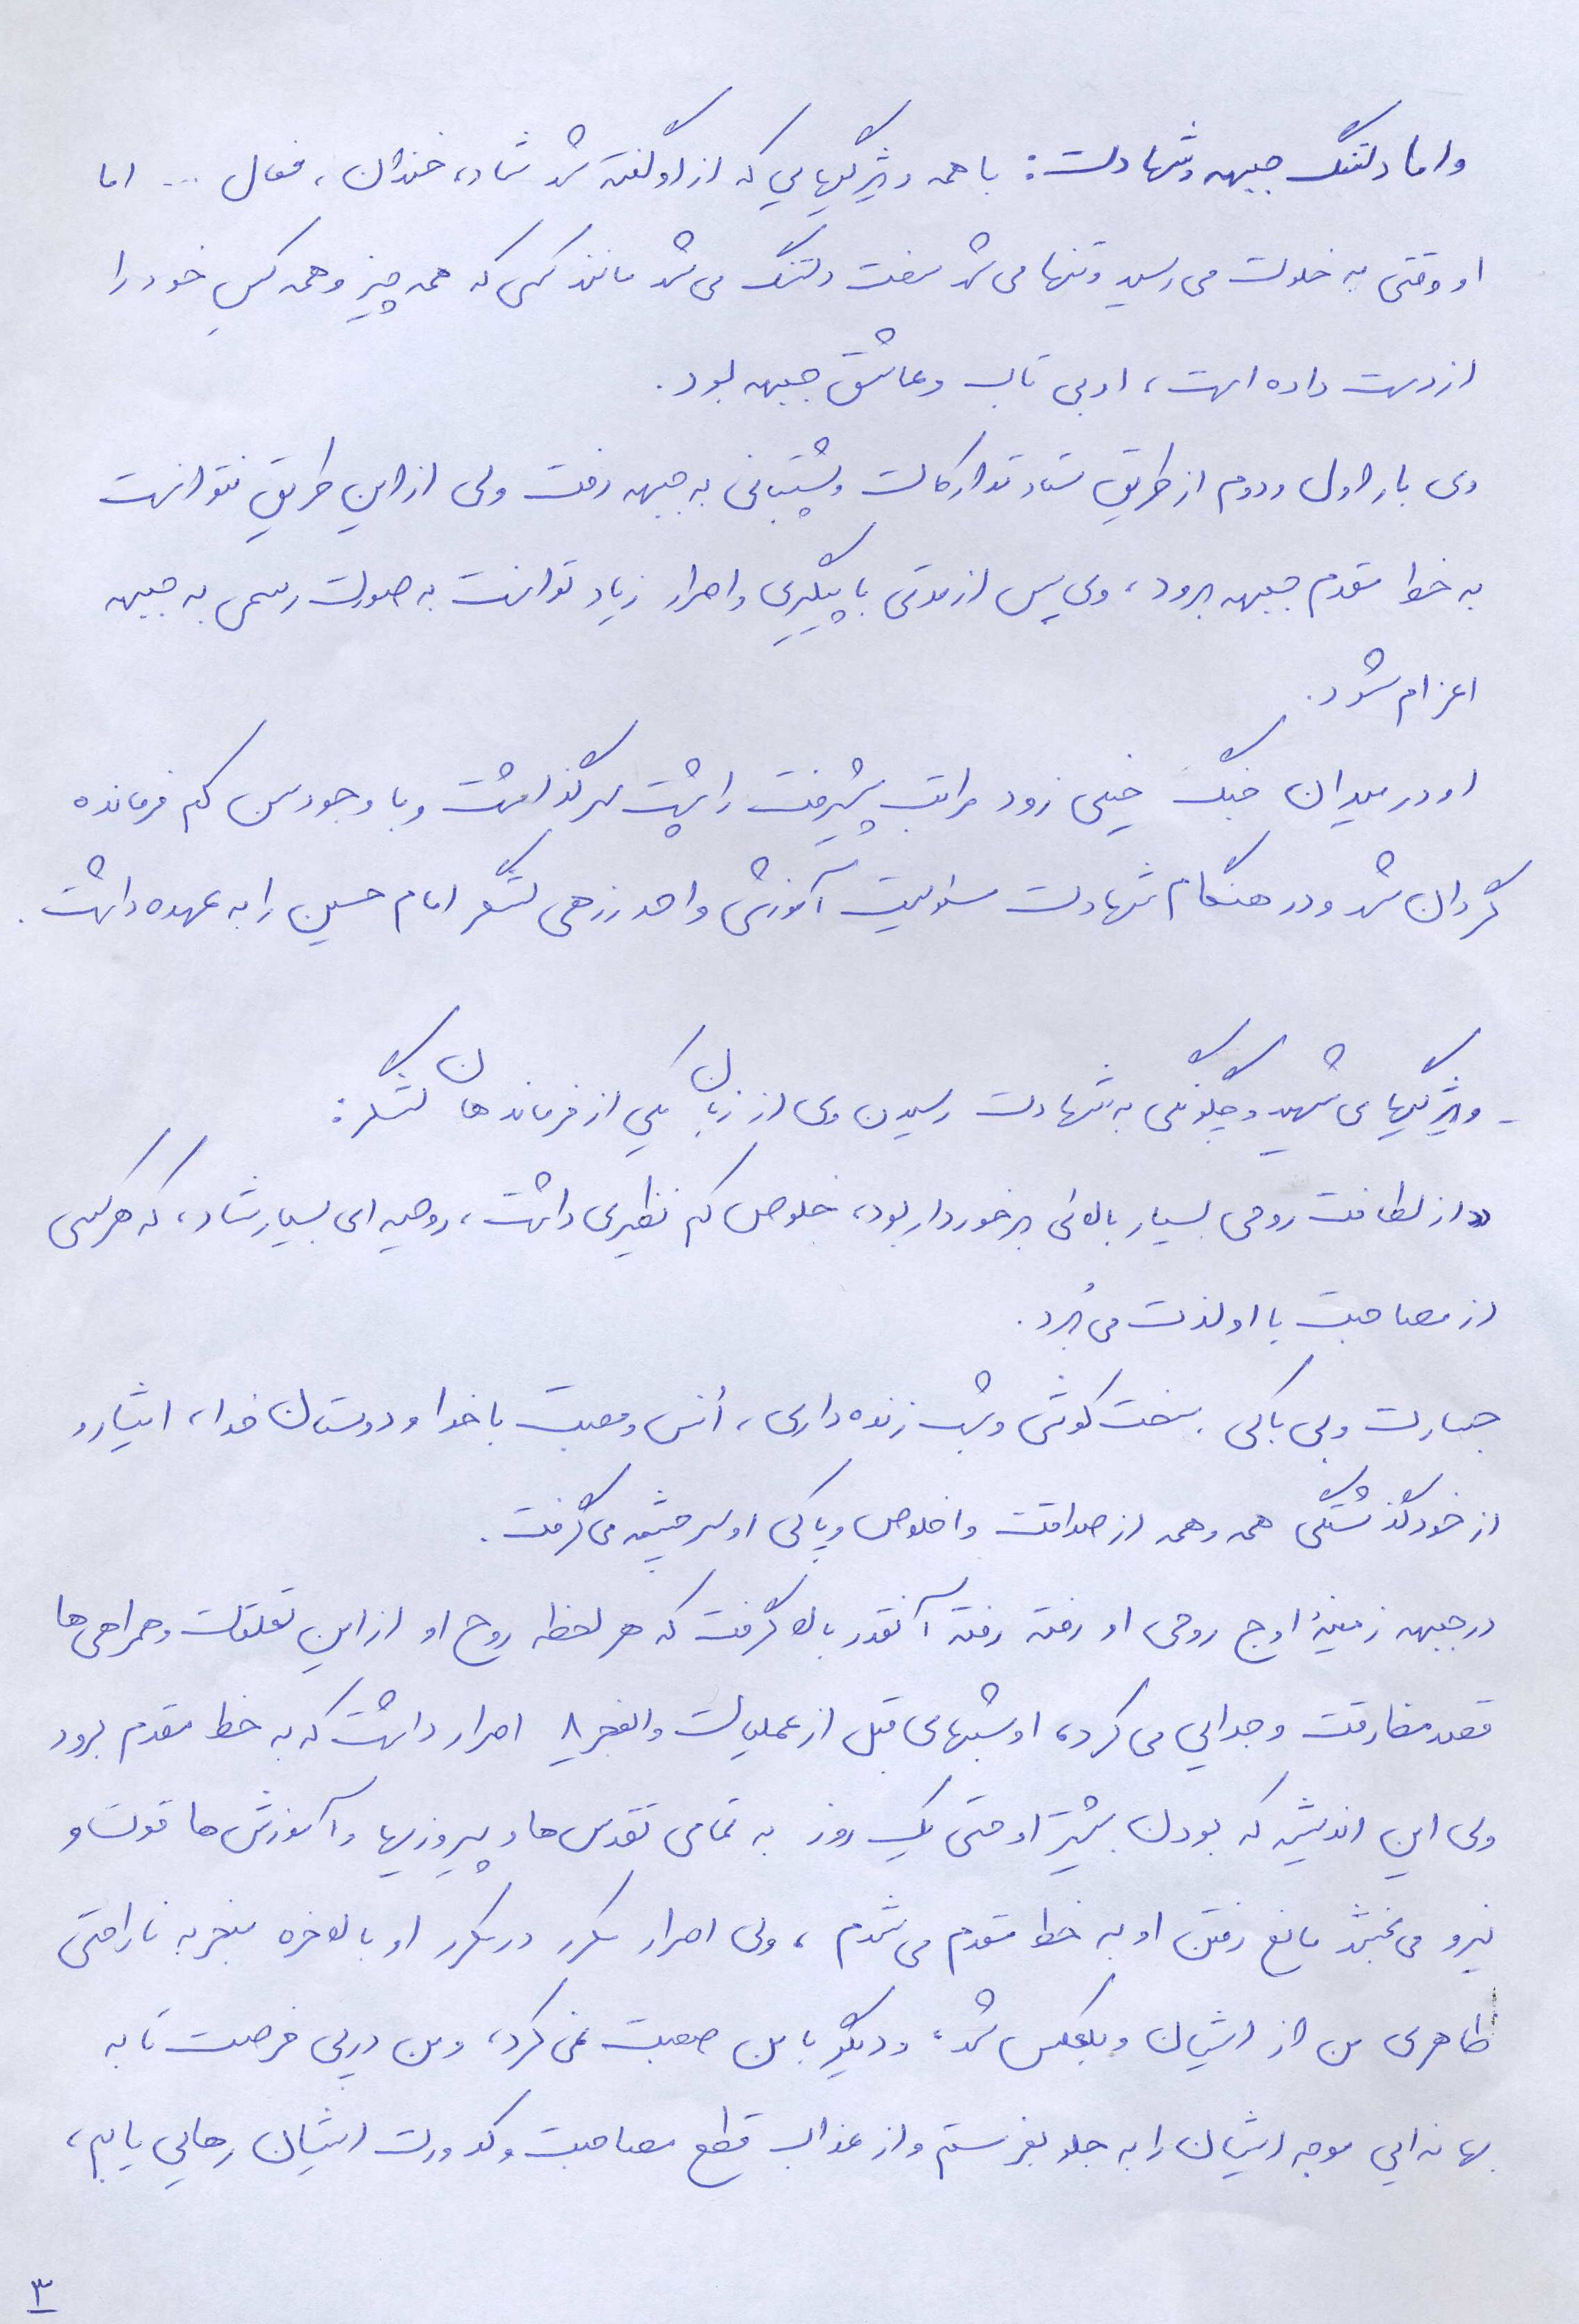 و اما دلتنگ جبهه و شهادت: با همه ویژگیهایی که از او گفته شد شاد، خندان، فعال ... اما
او وقتی به خلوت می رسید و تنها می شد سخت دلتنگ می شد مانند کسی که همه چیز و همه کسِ خود را
از دست داده است، او بی تاب و عاشق جبهه بود.
وی بار اول و دوم از طریق ستاد تدارکات و پشتیبانی به جبهه رفت ولی از این طریق نتوانست
به خط مقدم جبهه برود، ولی پس از مدتی با پیگیری و اصرار زیاد توانست به صورت رسمی به جبهه
اعزام شود.
او در میدان جنگ خیلی زود مراتب پیشرفت را پشت سر گذاشت و با وجود سن کم فرمانده
گردان شد و در هنگام شهادت مسئولیت آموزشی واحد زرهی لشگر امام حسین را به عهده داشت.
- ویژگیهای شهید و چگونگی به شهادت رسیدن وی از زبان یکی از فرماندهان لشگر:
«از لطافت روحی بسیار بالائی برخوردار بود، خلوص کم نظیری داشت، روحیه ای بسیار شاد، که هر کسی
از مصاحبت با او لذت می بُرد.
جسارت و بی باکی، سخت کوشی و شب زنده داری، اُنس و محبت با خدا و دوستان خدا، ایثار و
از خود گذشتگی همه و همه از صداقت و اخلاص و پاکی او سرچشمه می گرفت.
در جبهه زمینهٔ اوج روحی او رفته رفته آنقدر بالا گرفت که هر لحظه روح او از این تعلقات و همراهی ها
قصد مفارقت و جدایی می کرد، او شبهای قبل از عملیات والفجر ۸ اصرار داشت که به خط مقدم برود
ولی این اندیشه که بودن بیشتر او حتی یک روز به تمامی تقدس ها و پیروزیها و آموزش ها قوت و
نیرو می بخشد مانع رفتن او به خط مقدم می شدم، ولی اصرار مکرر در مکرر او بالاخره منجر به ناراحتی
ظاهری من از ایشان و بلعکس شد، و دیگر با من صحبت نمی کرد، و من در پی فرصت تا به
بهانه ایی موجه ایشان را به جلو بفرستم و از عذاب قطع مصاحبت و کدورت ایشان رهایی یابم،
۳